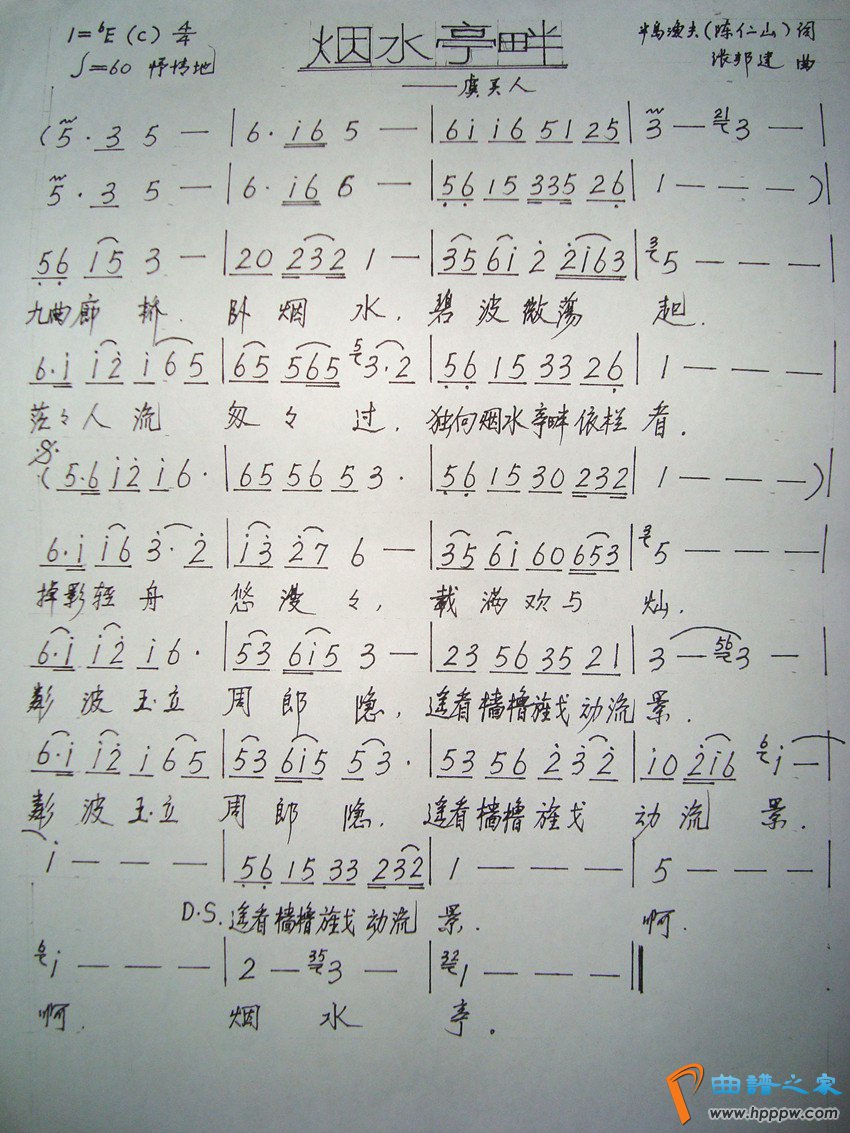 1=♭E (C) 4/4
♩=60 抒情地
烟水亭畔
——虞美人
半岛渔夫(陈仁山)词
张邦建 曲
(5· 3 5 — | 6· i6 5 — | 6i i6 51 25 | 3 — 21 3 — |
5· 3 5 — | 6· i6 6 — | 56 15 335 26 | 1 — — — )
56 15 3 — | 20 232 1 — | 35 6i 2 2i63 | 3 5 — — — |
九曲廊桥. 卧烟水, 碧波微荡 起.
6·i i2 i65 | 65 565 5 3·2 | 56 15 33 26 | 1 — — — |
茫々人流 匆々过, 独向烟水亭畔依栏者.
(5·6 i2 i6· | 65 56 53· | 56 15 30 232 | 1 — — — )
6·i i6 3·2 | i3 27 6 — | 35 6i 60 653 | 3 5 — — — |
掉影轻舟 悠漫々, 载满欢与 灿.
6·i i2 i6· | 53 6i5 3 — | 23 56 35 21 | 3 — 56 3 — |
彭波玉立 周郎隐, 遥看樯橹旌戈动流景.
6·i i2 i65 | 53 6i5 53· | 53 56 232 | i0 2i6 6 i — |
彭波玉立 周郎隐. 遥看樯橹旌戈 动流景.
i — — — | 56 15 33 232 | 1 — — — | 5 — — — |
D.S. 遥看樯橹旌戈动流景. 啊.
6 i — — — | 2 — 35 3 — | 32 1 — — — ‖
啊. 烟水亭.
曲谱之家
www.hpppw.com